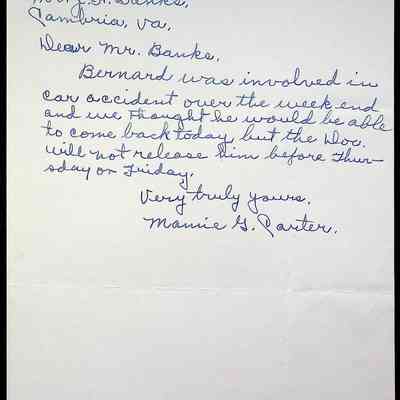 Mr. J. H. Banks,
Cambria, Va,
Dear Mr. Banks,
Bernard was involved in
car accident over the week end
and we thought he would be able
to come back today, but the Doc.
will not release him before Thur-
sday or Friday.
Very truly yours,
Mamie G. Carter.